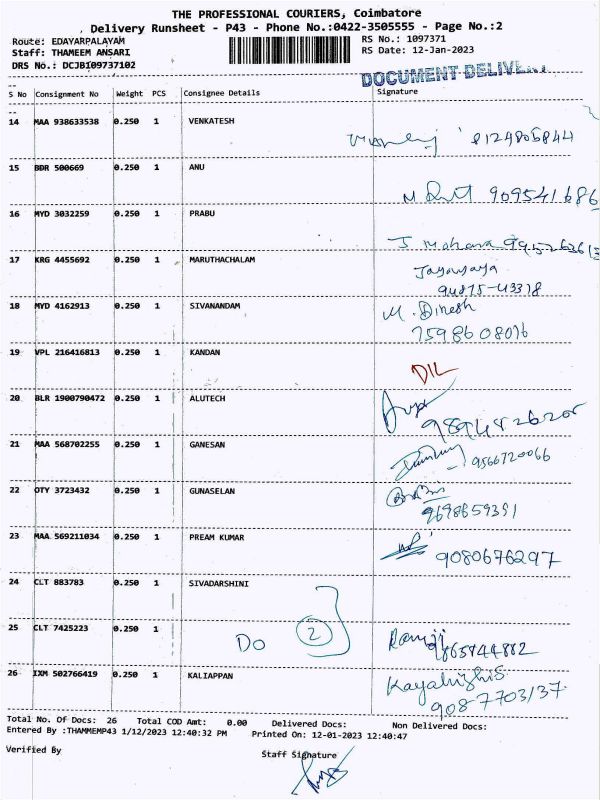 THE PROFESSIONAL COURIERS, Coimbatore
Delivery Runsheet - P43 - Phone No.:0422-3505555 - Page No.:2
Route: EDAYARPALAYAM RS No.: 1097371
Staff: THAMEEM ANSARI RS Date: 12-Jan-2023
DRS No.: DCJB109737102
DOCUMENT DELIVERY
S No Consignment No Weight PCS Consignee Details Signature
14 MAA 938633538 0.250 1 VENKATESH
8124805844
15 BDR 500669 0.250 1 ANU
909541686
16 MYD 3032259 0.250 1 PRABU
J. Mohana
17 KRG 4455692 0.250 1 MARUTHACHALAM
94875-43378
18 MYD 4162913 0.250 1 SIVANANDAM
M. Dinesh
7598608076
19 VPL 216416813 0.250 1 KANDAN
DIL
20 BLR 1900790472 0.250 1 ALUTECH
21 MAA 568702255 0.250 1 GANESAN
9566720066
22 OTY 3723432 0.250 1 GUNASELAN
9698659391
23 MAA 569211034 0.250 1 PREAM KUMAR
9080676297
24 CLT 883783 0.250 1 SIVADARSHINI
25 CLT 7425223 0.250 1 Do 2 Ramji
26 IXM 502766419 0.250 1 KALIAPPAN
Total No. Of Docs: 26 Total COD Amt: 0.00 Delivered Docs: Non Delivered Docs:
Entered By :THAMMEMP43 1/12/2023 12:40:32 PM Printed On: 12-01-2023 12:40:47
Verified By Staff Signature